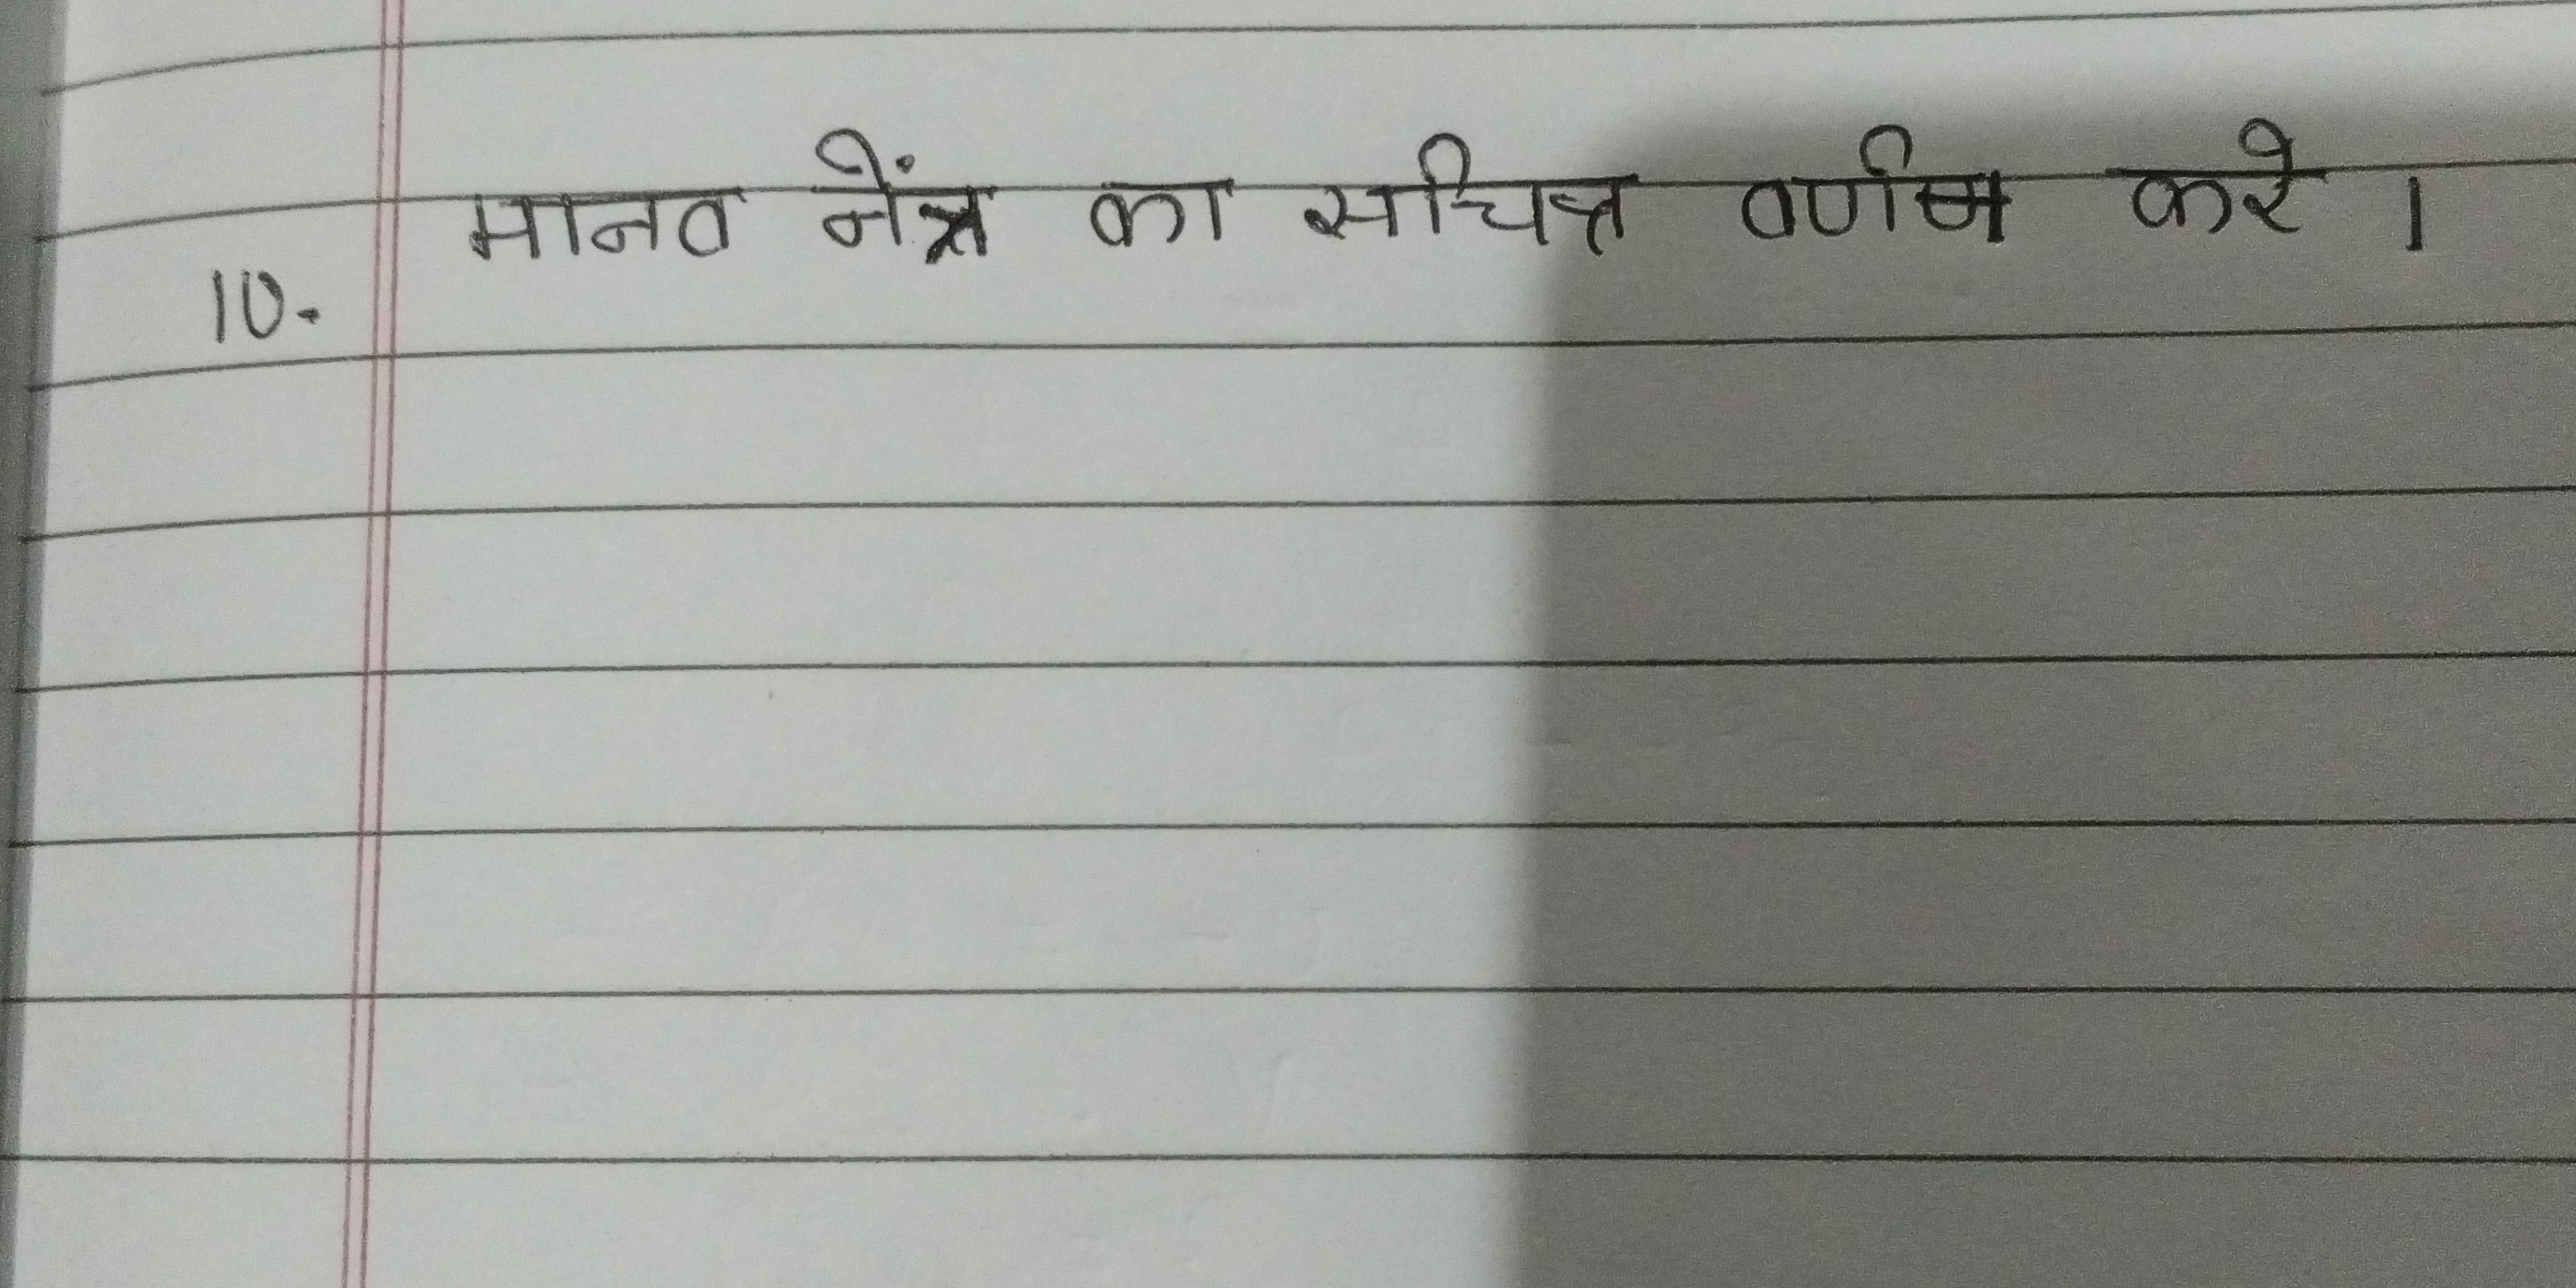 मानव नेंत्र का सचित्र वर्णन करे ।
10.